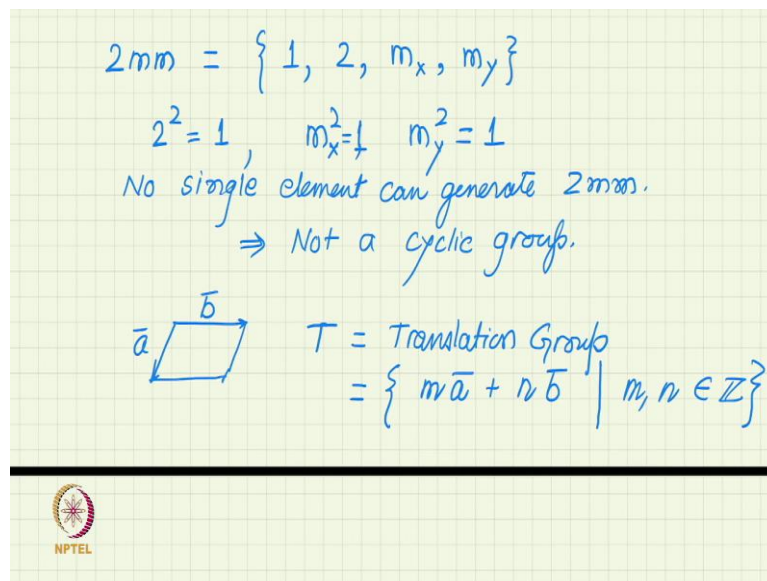 2mm = { 1, 2, mₓ, m_y }
2² = 1, mₓ² = 1 m_y² = 1
No single element can generate 2mm.
⇒ Not a cyclic group.
b̅
a̅ T = Translation Group
= { m a̅ + n b̅ | m, n ∈ ℤ }
NPTEL